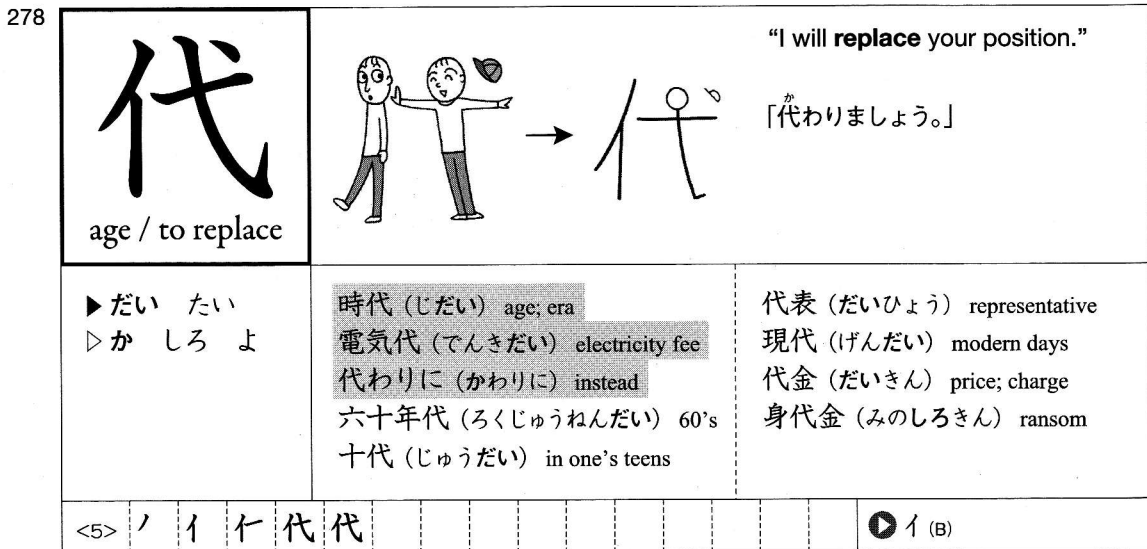 278
代
age / to replace
"I will replace your position."
「代わりましょう。」
か
▶ だい たい
▷ か しろ よ
時代（じだい） age; era
電気代（でんきだい） electricity fee
代わりに（かわりに） instead
六十年代（ろくじゅうねんだい） 60's
十代（じゅうだい） in one's teens
代表（だいひょう） representative
現代（げんだい） modern days
代金（だいきん） price; charge
身代金（みのしろきん） ransom
<5> ノ イ 仁 代 代
イ (B)